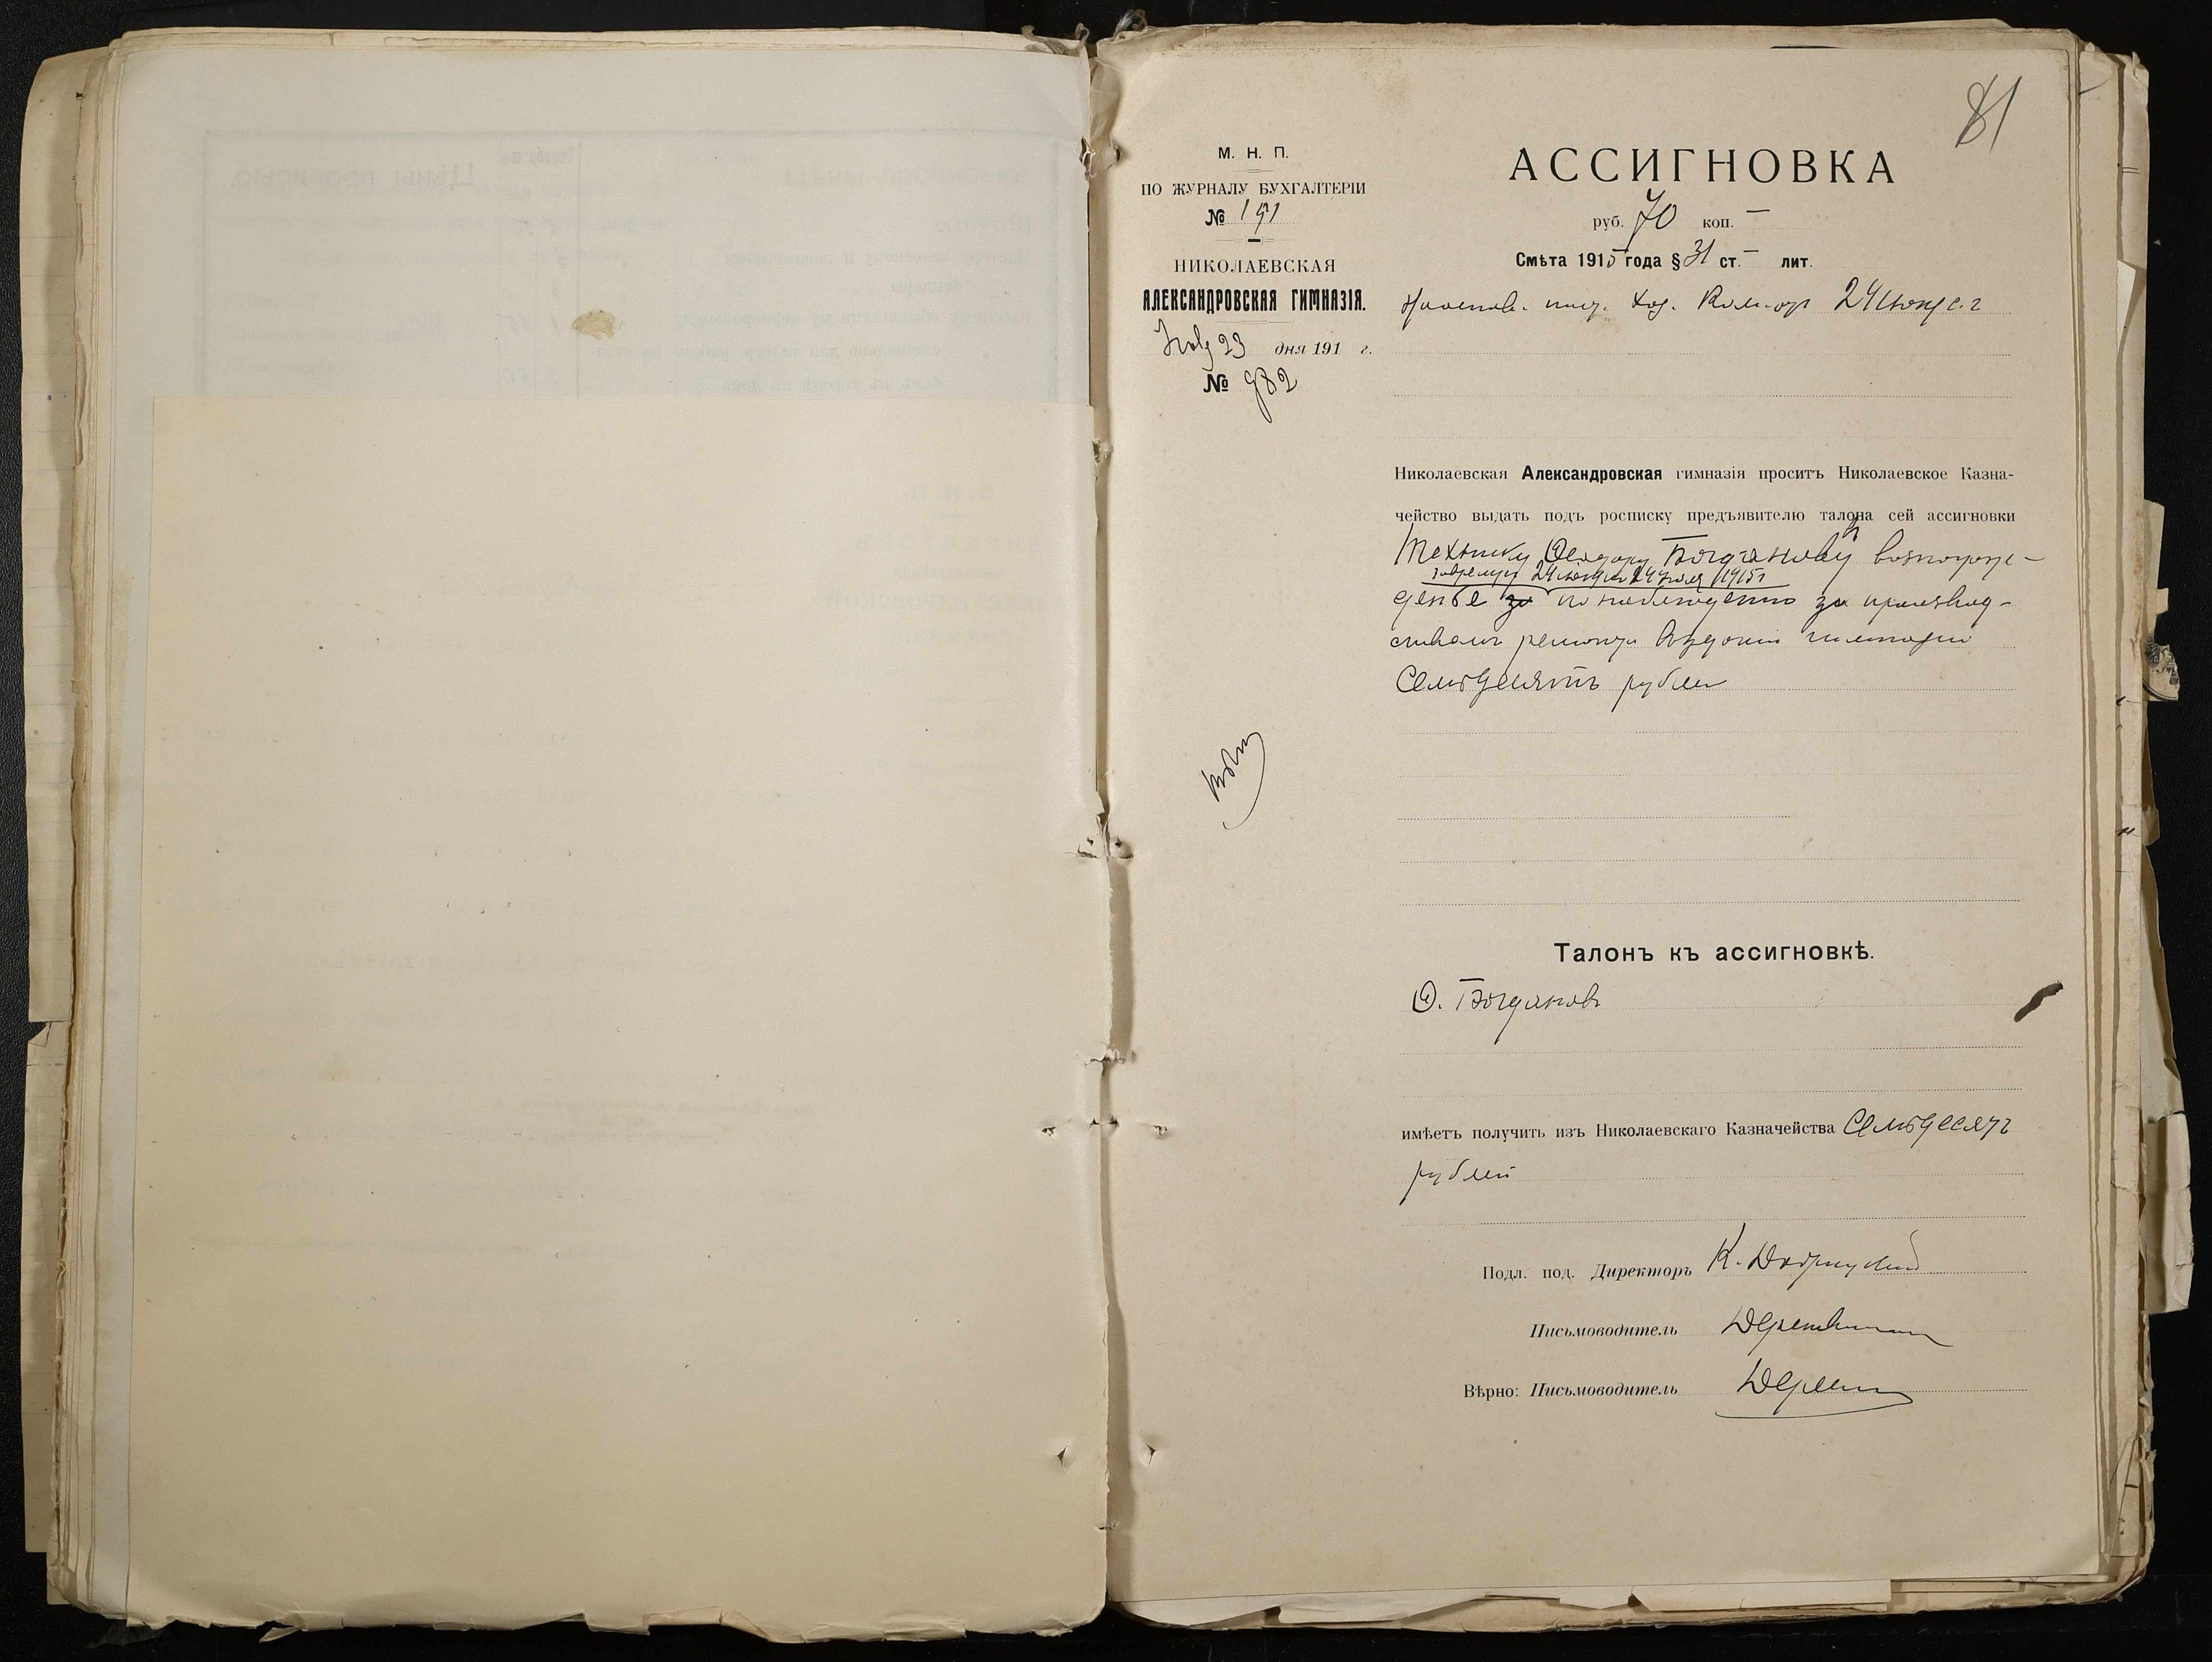 81
М. Н. П.
ПО ЖУРНАЛУ БУХГАЛТЕРІИ
№ 191
НИКОЛАЕВСКАЯ
АЛЕКСАНДРОВСКАЯ ГИМНАЗІЯ.
23 дня 191 г.
№ 982
АССИГНОВКА
руб. 70 коп. —
Смѣта 1915 года § 31 ст. — лит.
Хоз. 24
Николаевская Александровская гимназія проситъ Николаевское Казна-
чейство выдать подъ росписку предъявителю талона сей ассигновки
Технику Ѳеодору Богданову вознагра-
за время съ 24 24 1915 г
жденіе по наблюденію за производ-
ствомъ ремонта гимназіи
Семьдесятъ рублей
Талонъ къ ассигновкѣ.
Ѳ. Богдановъ
имѣетъ получить изъ Николаевскаго Казначейства Семьдесятъ
рублей
Подл. под. Директоръ К.
Письмоводитель
Вѣрно: Письмоводитель